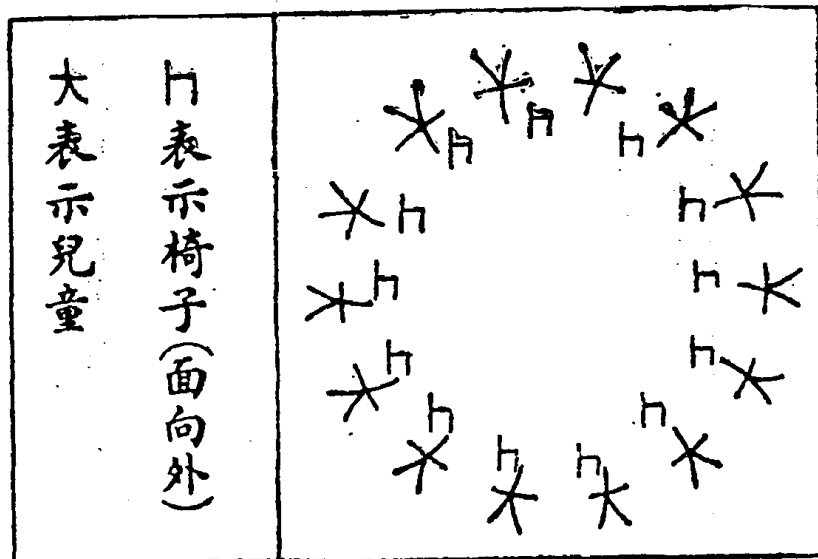 ㄣ表示椅子(面向外)
大表示兒童